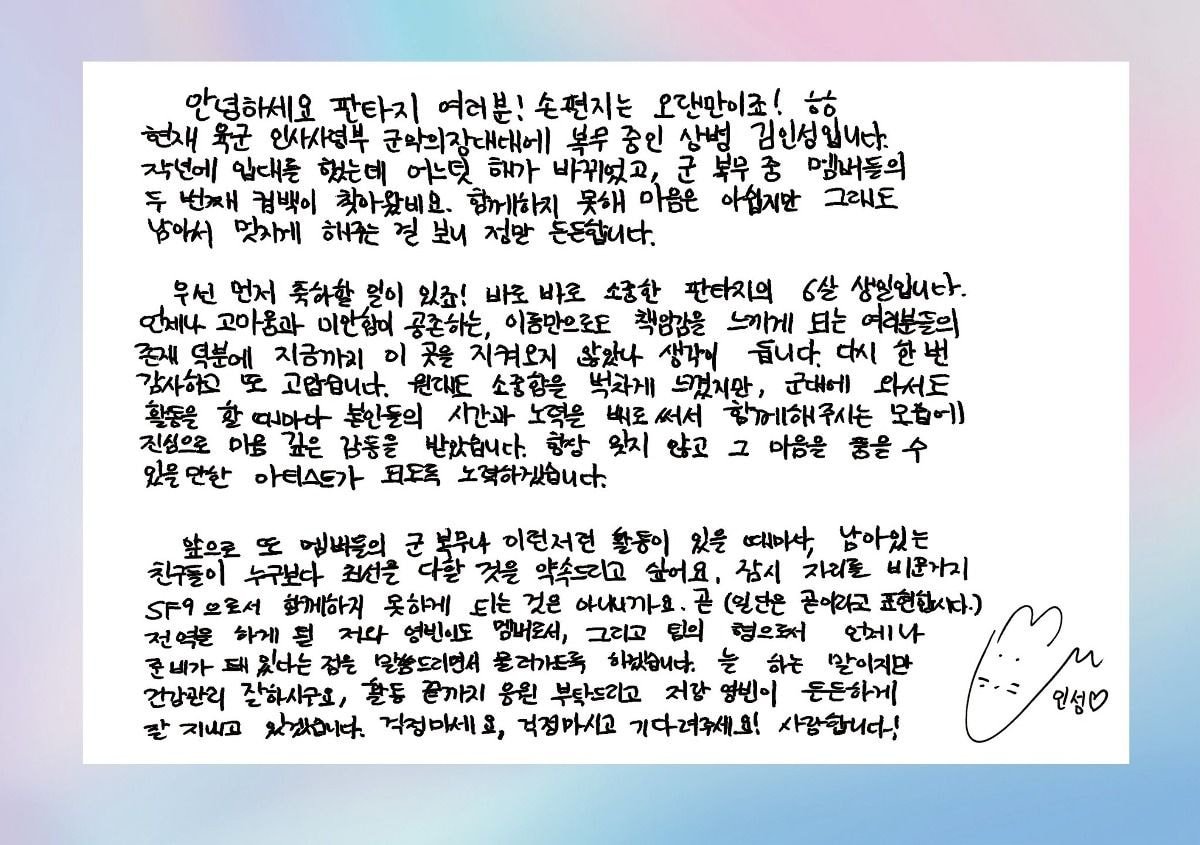 안녕하세요 판타지 여러분! 손편지는 오랜만이죠! ㅎㅎ
현재 육군 인사사령부 군악의장대대에 복무 중인 상병 김인성입니다.
작년에 입대를 했는데 어느덧 해가 바뀌었고, 군 복무 중 멤버들의
두 번째 컴백이 찾아왔네요. 함께하지 못해 마음은 아쉽지만 그래도
남아서 멋지게 해주는 걸 보니 정말 든든합니다.
우선 먼저 축하할 일이 있죠! 바로 바로 소중한 판타지의 6살 생일입니다.
언제나 고마움과 미안함이 공존하는, 이름만으로도 책임감을 느끼게 되는 여러분들의
존재 덕분에 지금까지 이 곳을 지켜오지 않았나 생각이 듭니다. 다시 한 번
감사하고 또 고맙습니다. 원래도 소중함을 벅차게 느꼈지만, 군대에 와서도
활동을 할 때마다 본인들의 시간과 노력을 배로 써서 함께해주시는 모습에
진심으로 마음 깊은 감동을 받았습니다. 항상 잊지 않고 그 마음을 품을 수
있을 만한 아티스트가 되도록 노력하겠습니다.
앞으로 또 멤버들의 군 복무나 이런저런 활동이 있을 때마다, 남아있는
친구들이 누구보다 최선을 다할 것을 약속드리고 싶어요. 잠시 자리를 비운거지
SF9으로서 함께하지 못하게 되는 것은 아니니까요. 곧 (일단은 곧이라고 표현합시다.)
전역을 하게 될 저와 영빈이도 멤버로서, 그리고 팀의 형으로서 언제나
준비가 돼 있다는 점을 말씀드리면서 물러가도록 하겠습니다. 늘 하는 말이지만
건강관리 잘하시구요, 활동 끝까지 응원 부탁드리고 저랑 영빈이 든든하게
잘 지내고 있겠습니다. 걱정마세요, 걱정마시고 기다려주세요! 사랑합니다!
인성♡